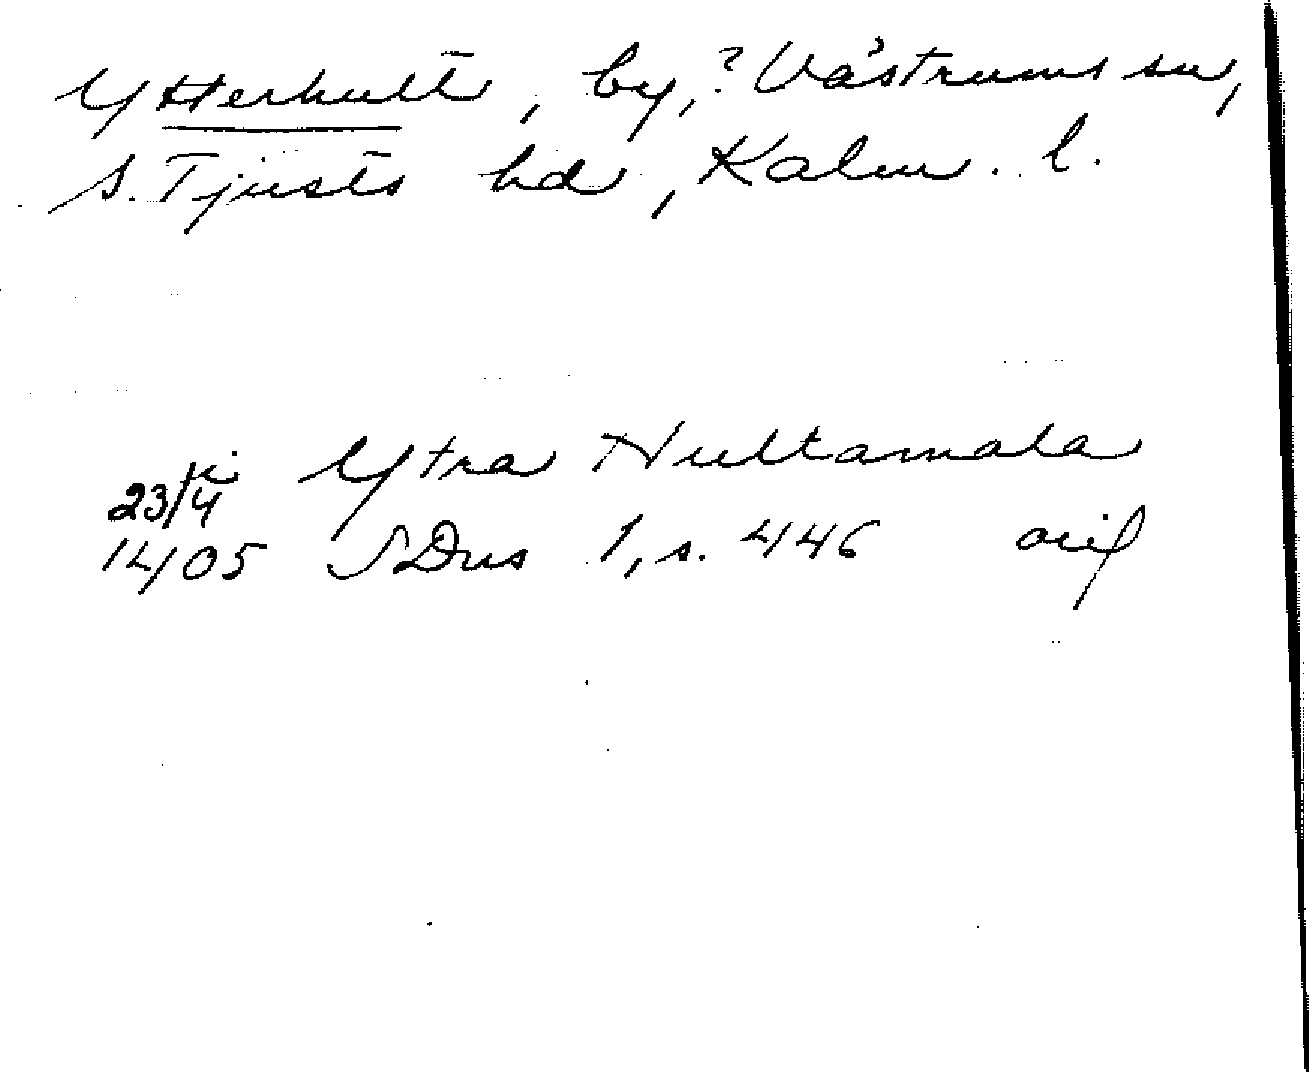 Ytterhult, by, ? Västrums sn,
S. Tjusts hd, Kalm. l.
Ytra Hultamala
23/4
1405 SDns 1, s. 446 orig